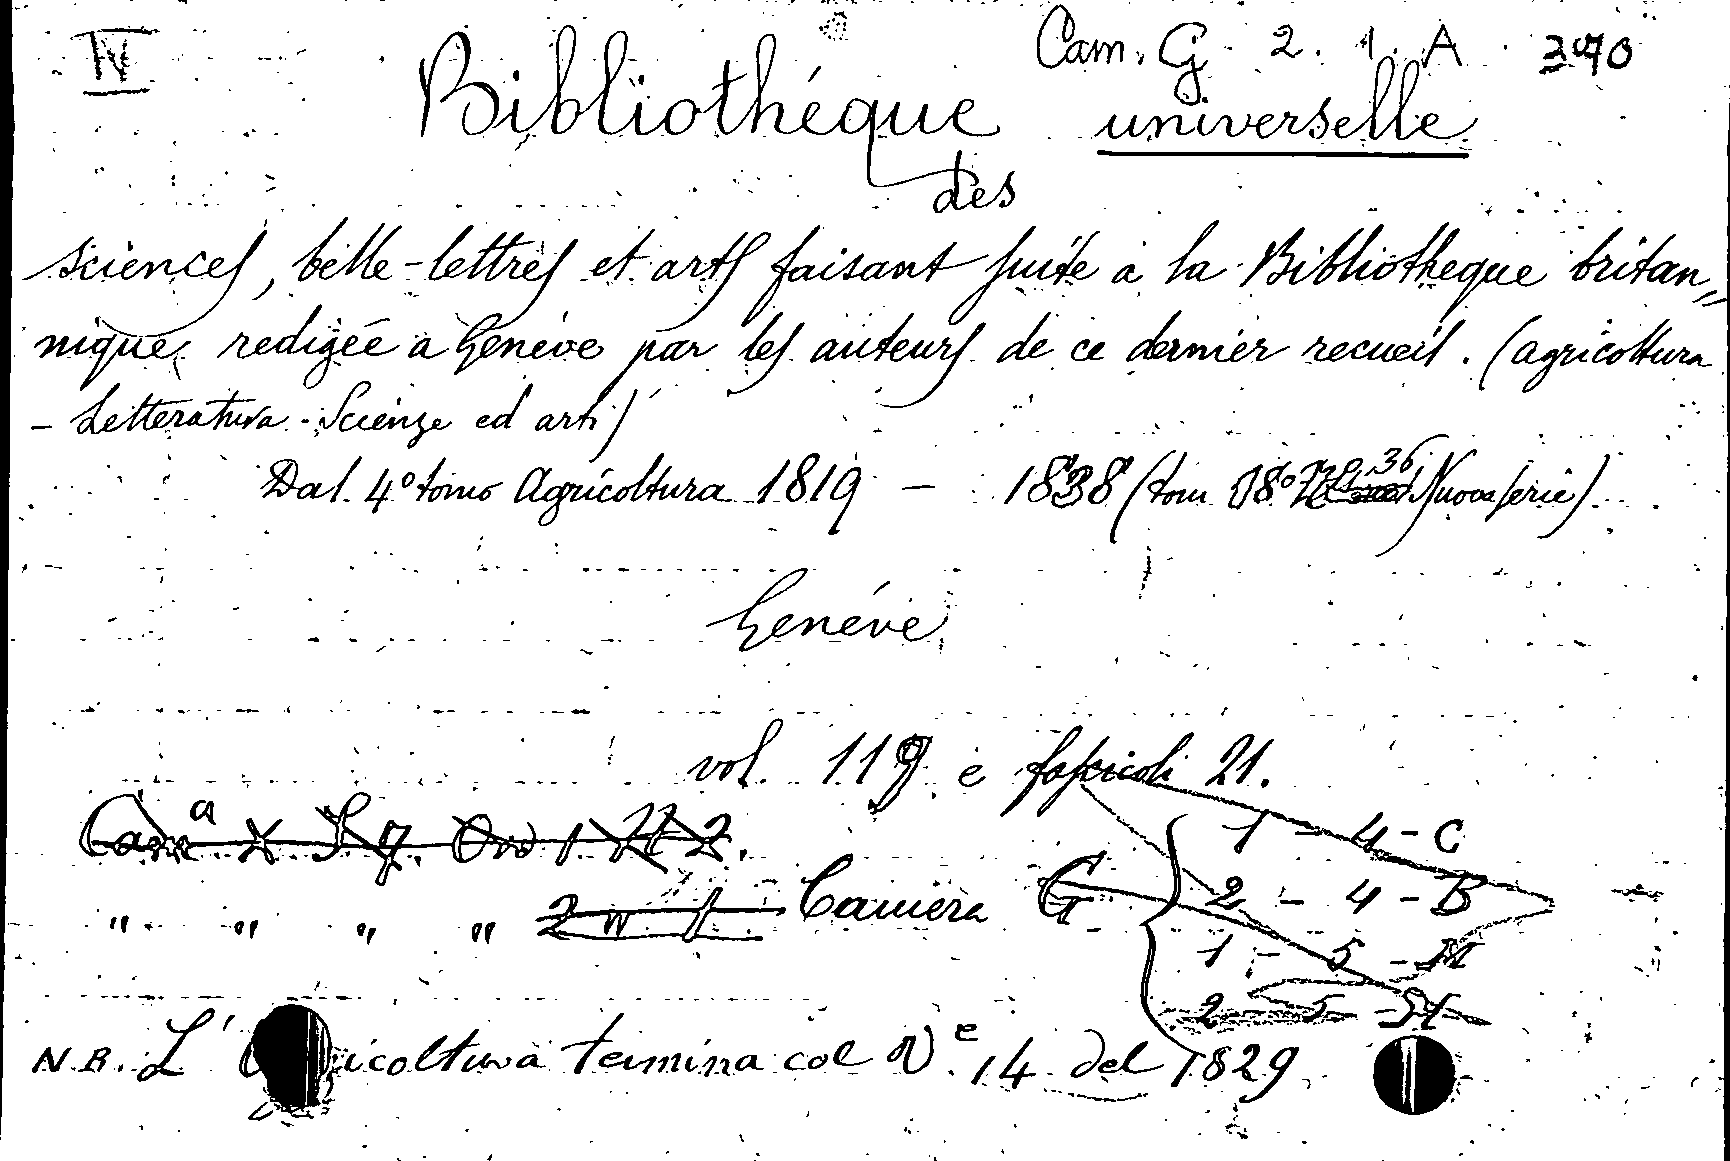 IV
Cam. G. 2. 1. A. 370
Bibliothéque universelle
des
sciences, belle-lettres et arts faisant suite a la Bibliotheque britan„
nique, redigée a Genève par les auteurs de ce dernier recueil. (agricoltura
- Letteratura - Scienze ed arti)
Dal 4º tomo Agricoltura 1819 — 1838 (tom 18º 36 Nuova serie)
Genéve
vol. 119 e fascicoli 21.
Camª X. 1 2.
1 - 4 - C
" " " " 2 Camera G 2 - 4 - B
1 - 5 -
2 - 5 -
N.B. L'   icoltura termina col Nº 14 del 1829